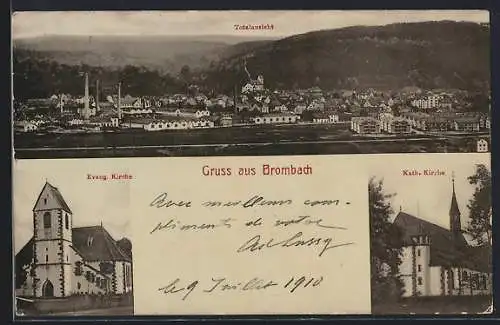 Totalansicht
Evang. Kirche
Gruss aus Brombach
Kath. Kirche
Avec meilleurs com-
pliments de votre
le 9 Juillet 1910